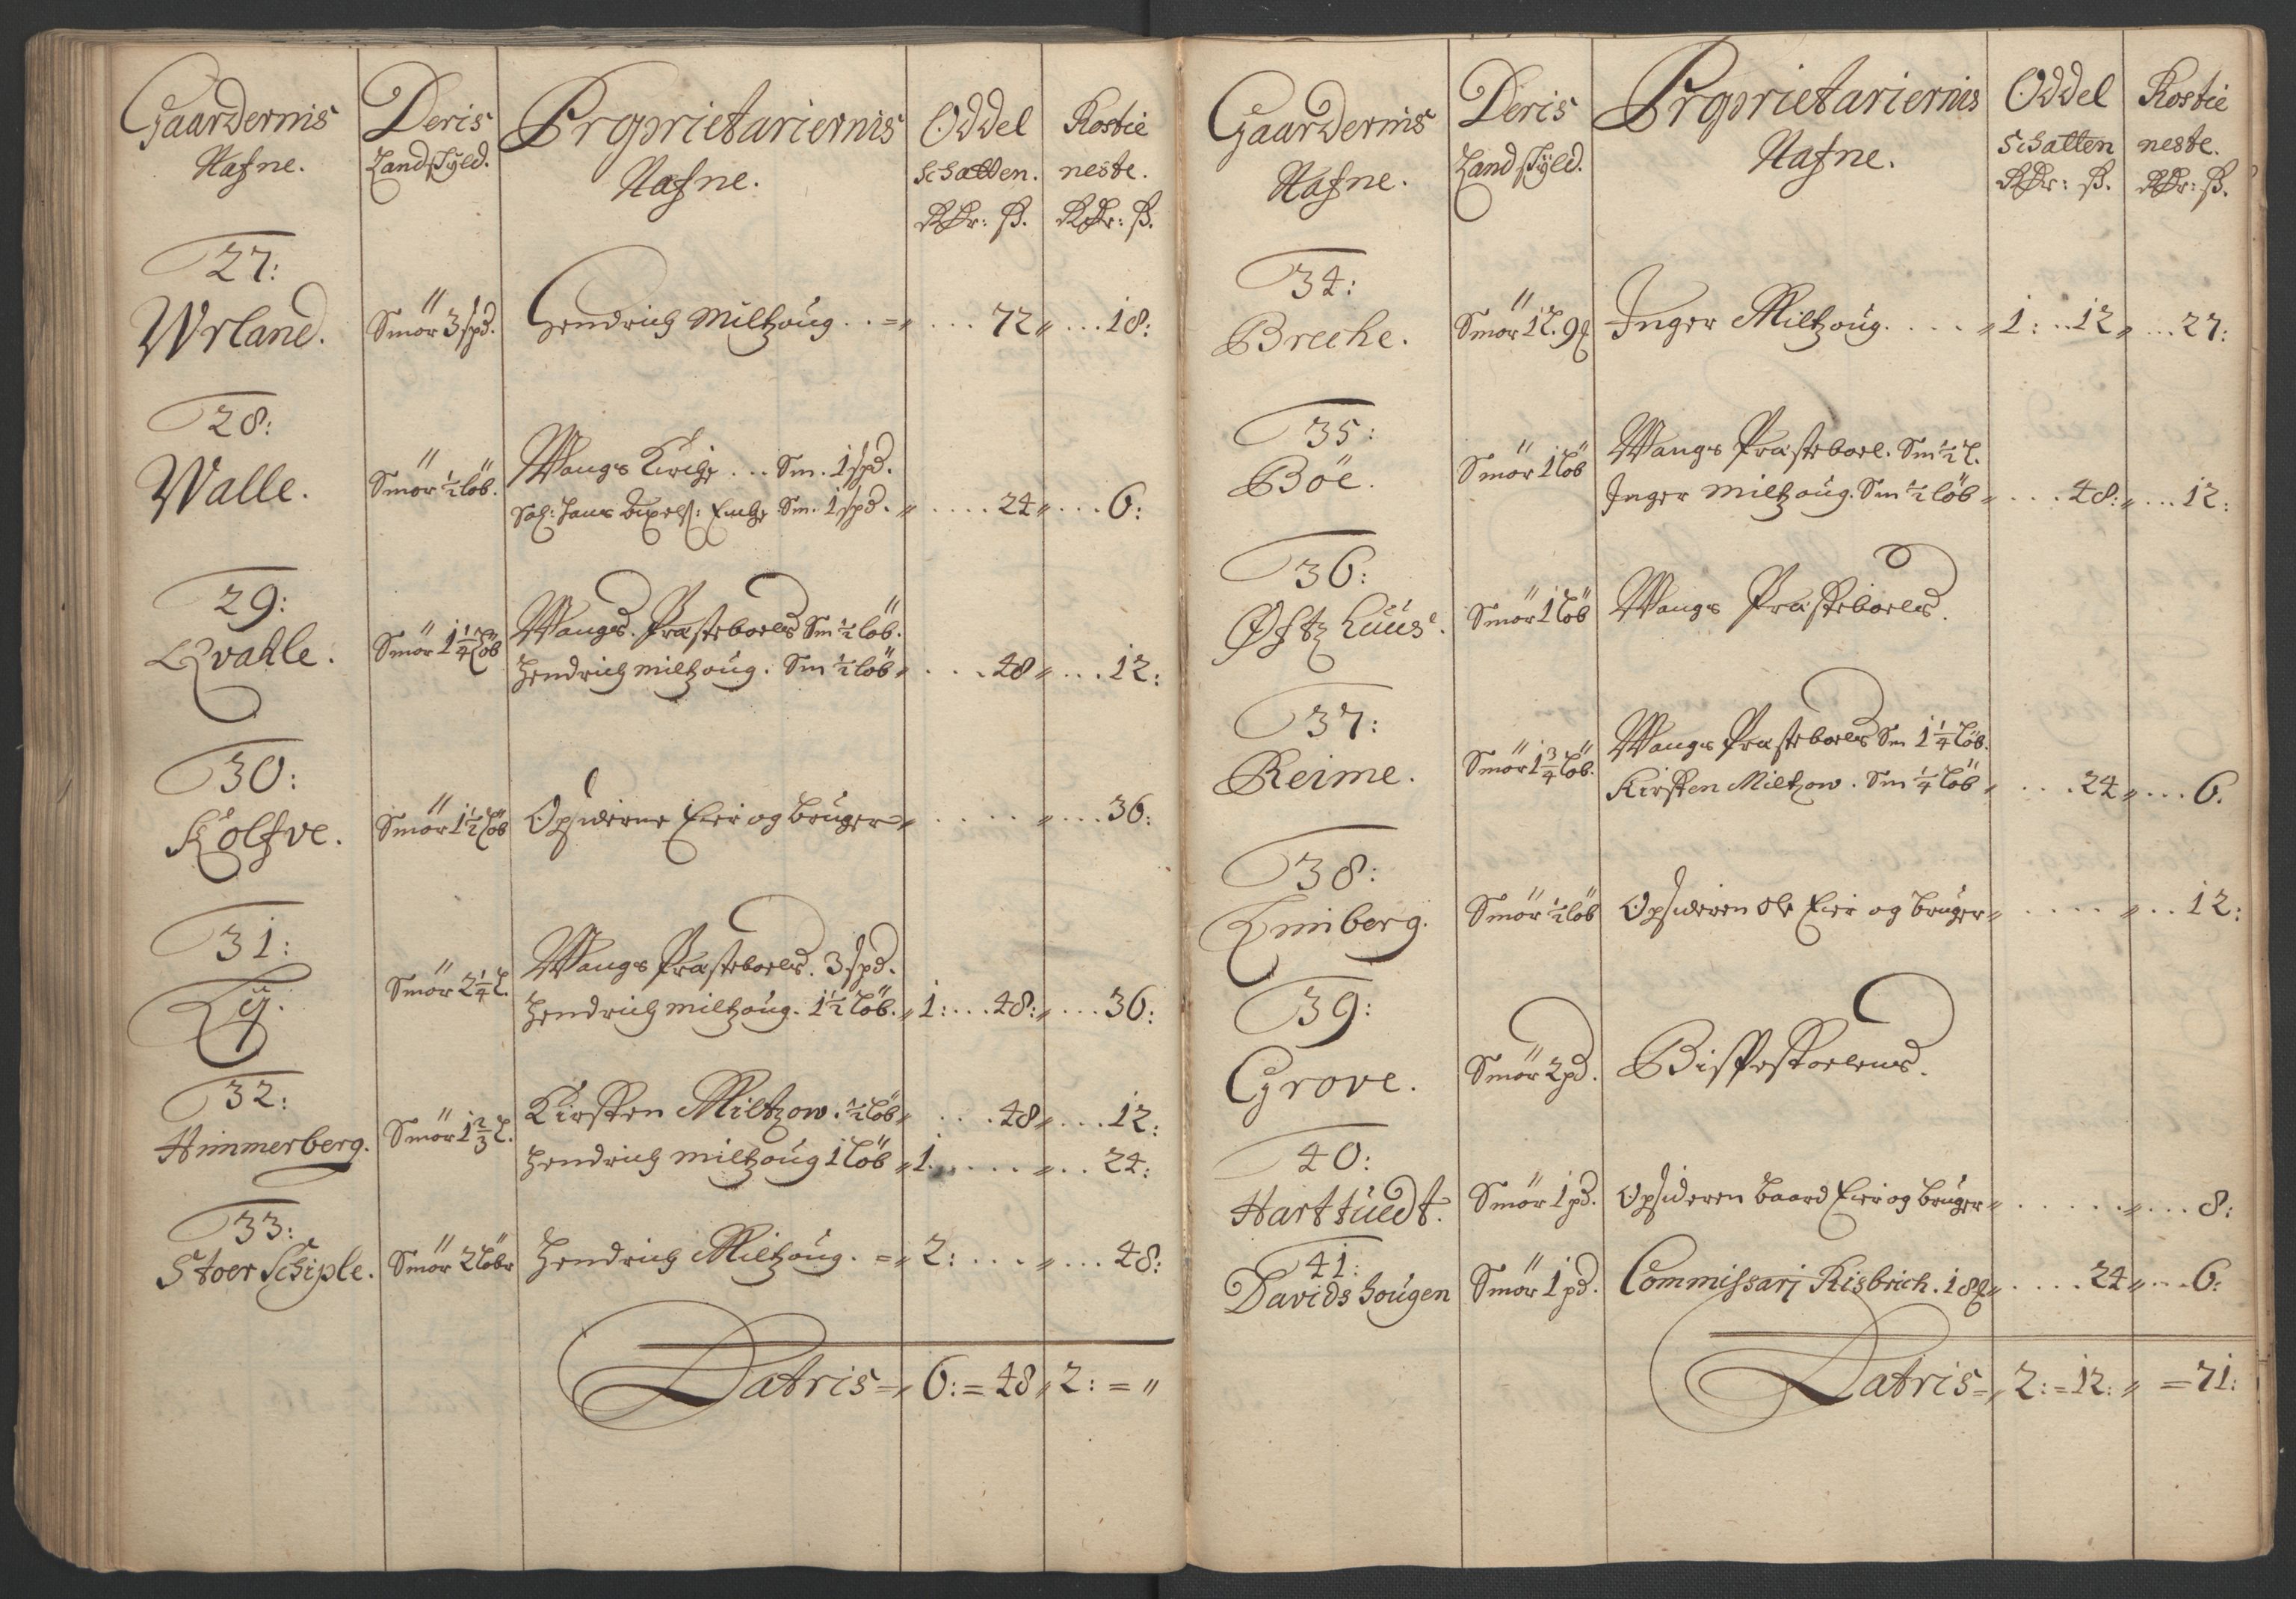 Gaardernis Nafne.
Deris Landskyld.
Proprietariernis Nafne.
Oddel Schatten. Rdr: ß.
Rostie neste. Rdr: ß.
27:
Wrland. Smör 3 spd. Hendrich Miltzoug . . = „ . . . 72 „ . . . 18:
28:
Walle. Smör ½ löb. Wangs Kirche . . . Sm. 1 spd.
Sal: Hans Enche Sm. 1 spd. „ . . . . 24 „ . . . 6:
29:
Qvahle. Smör 1¼ Löb Wangs. Præsteboels Sm ½ löb.
Hendrich Miltzoug. Sm ½ löb „ . . . 48 „ . . . 12:
30:
Kolfve. Smör 1½ Löb Opsiderne Eier og bruger „ . . . . „ . . . 36:
31:
Ly. Smör 2¼ L. Wangs Præsteboels. 3 spd.
Hendrich Miltzoug. 1½ Löb. „ 1: . . . 48: „ . . . 36:
32:
Himmerberg. Smör 1⅔ L. Kirsten Miltzow. ½ löb „ . . . 48 „ . . . 12:
Hendrich Miltzoug 1 Löb „ 1. . . . . „ . . . 24:
33:
Stoer Schiple. Smör 2 Löber Hendrich Miltzoug. = „ 2: . . . „ . . . 48:
Latris = „ 6: = 48 „ 2: = „
Gaardernis Nafne.
Deris Landskyld.
Proprietariernis Nafne.
Oddel Schatten Rdr: ß.
Rostie neste. Rdr: ß.
34:
Breche. Smör 1 L. 9 Inger Miltzoug. . . . „ 1: . . 12 „ . . . 27:
35:
Böe. Smör 1 Löb Wangs Præsteboel. Sm ½ L.
Inger Miltzoug. Sm ½ löb „ . . . 48: „ . . . 12:
36:
Øftz huus. Smör 1 Löb Wangs Præsteboels.
37:
Reime. Smör 1¾ Löb. Wangs Præsteboels Sm 1¼ Löb.
Kirsten Miltzow. Sm ¼ Löb „ . . . 24 „ . . . 6.
38:
Emberg. Smör ½ löb Opsideren Ole Eier og bruger „ . . . . „ . . 12:
39:
Grove. Smör 2 pd. Bispestoelens.
40:
Harttuedt. Smör 1 pd. Opsideren Baard Eier og bruger „ . . . . „ . . . 8:
41:
Davids hougen Smör 1 pd. Commissarj Risbrich. 18 „ . . . . 24 „ . . . 6:
Latris = „ 2: = 12: „ = 71: